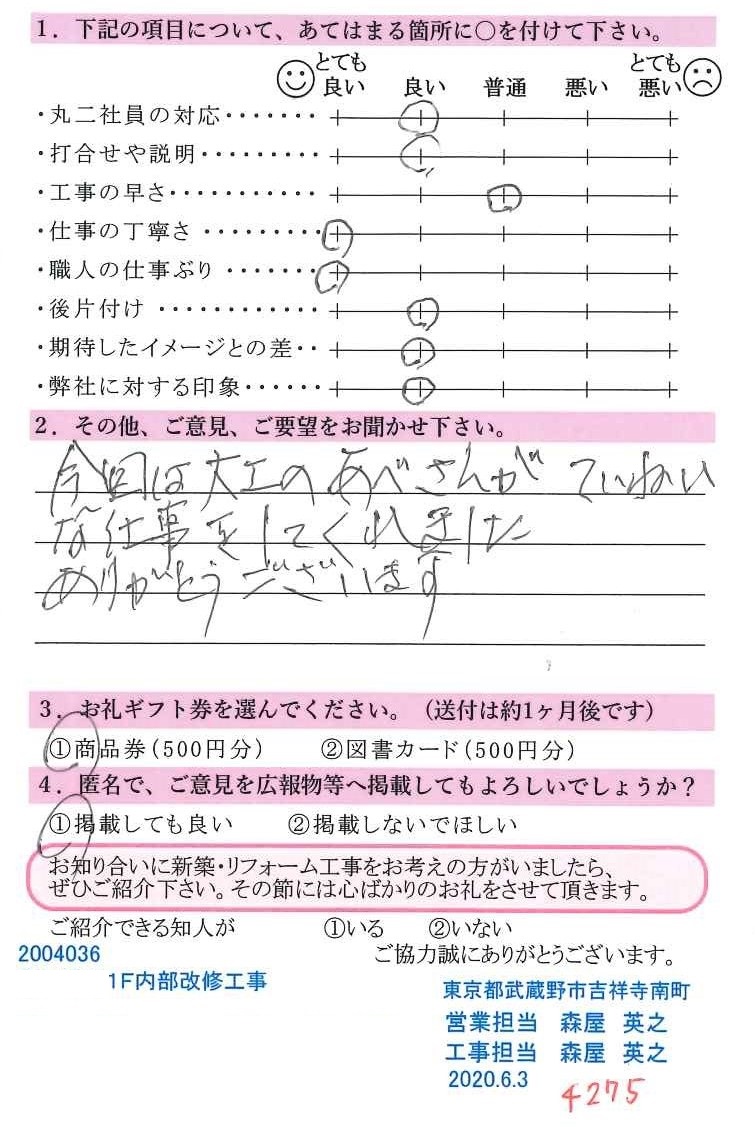 1．下記の項目について、あてはまる箇所に○を付けて下さい。
とても良い 良い 普通 悪い とても悪い
・丸二社員の対応・・・・・・・
・打合せや説明・・・・・・・・・
・工事の早さ・・・・・・・・・・・
・仕事の丁寧さ・・・・・・・・・
・職人の仕事ぶり・・・・・・・
・後片付け・・・・・・・・・・・・
・期待したイメージとの差・・
・弊社に対する印象・・・・・・
2．その他、ご意見、ご要望をお聞かせ下さい。
今回は大工のあべさんが ていねい
な仕事をしてくれました
ありがとうございます
3．お礼ギフト券を選んでください。（送付は約1ヶ月後です）
①商品券（500円分） ②図書カード（500円分）
4．匿名で、ご意見を広報物等へ掲載してもよろしいでしょうか？
①掲載しても良い ②掲載しないでほしい
お知り合いに新築・リフォーム工事をお考えの方がいましたら、
ぜひご紹介下さい。その節には心ばかりのお礼をさせて頂きます。
ご紹介できる知人が ①いる ②いない
2004036 ご協力誠にありがとうございます。
1F内部改修工事
東京都武蔵野市吉祥寺南町
営業担当 森屋 英之
工事担当 森屋 英之
2020.6.3
4275